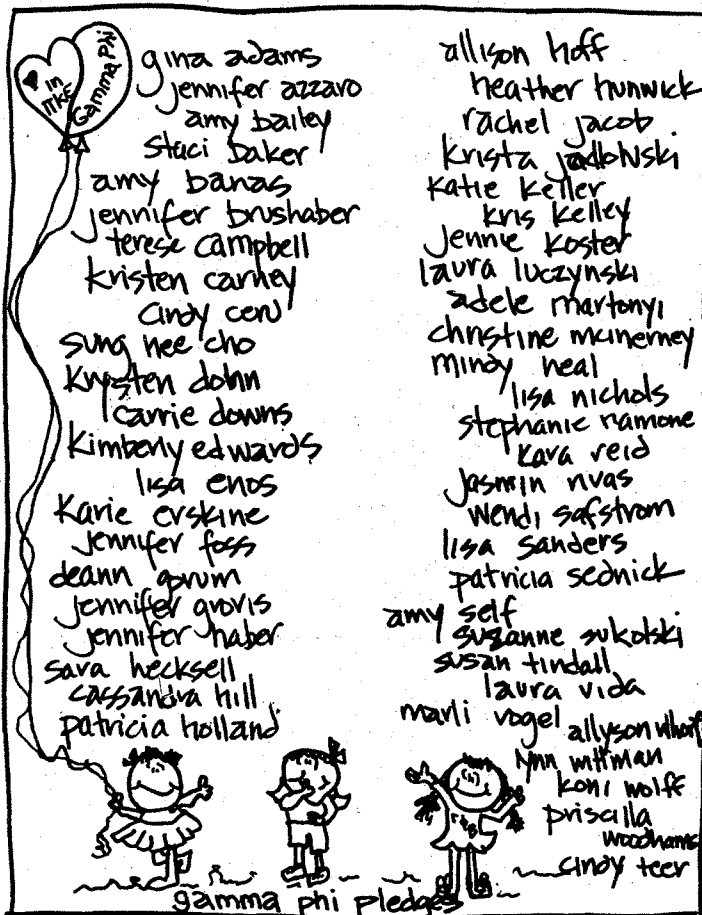 in
ΠΚΕ
Gamma Phi
gina adams
jennifer azzaro
amy bailey
staci baker
amy banas
jennifer brushaber
terese campbell
kristen carney
cindy
sung hee cho
krysten dohn
carrie downs
kimberly edwards
lisa enos
karie erskine
jennifer foss
deann gorum
jennifer grovis
jennifer haber
sara hecksell
cassandra hill
patricia holland
allison hoff
heather hunwick
rachel jacob
krista
katie keller
kris kelley
jennie koster
laura luczynski
adele martonyi
christine mcinerney
mindy neal
lisa nichols
stephanie ramone
kara reid
jasmin rivas
wendi safstrom
lisa sanders
patricia sednick
amy self
suzanne sukolski
susan tindall
laura vida
marli vogel
allyson
lynn wittman
koni wolff
priscilla
woodhams
cindy teer
gamma phi pledges